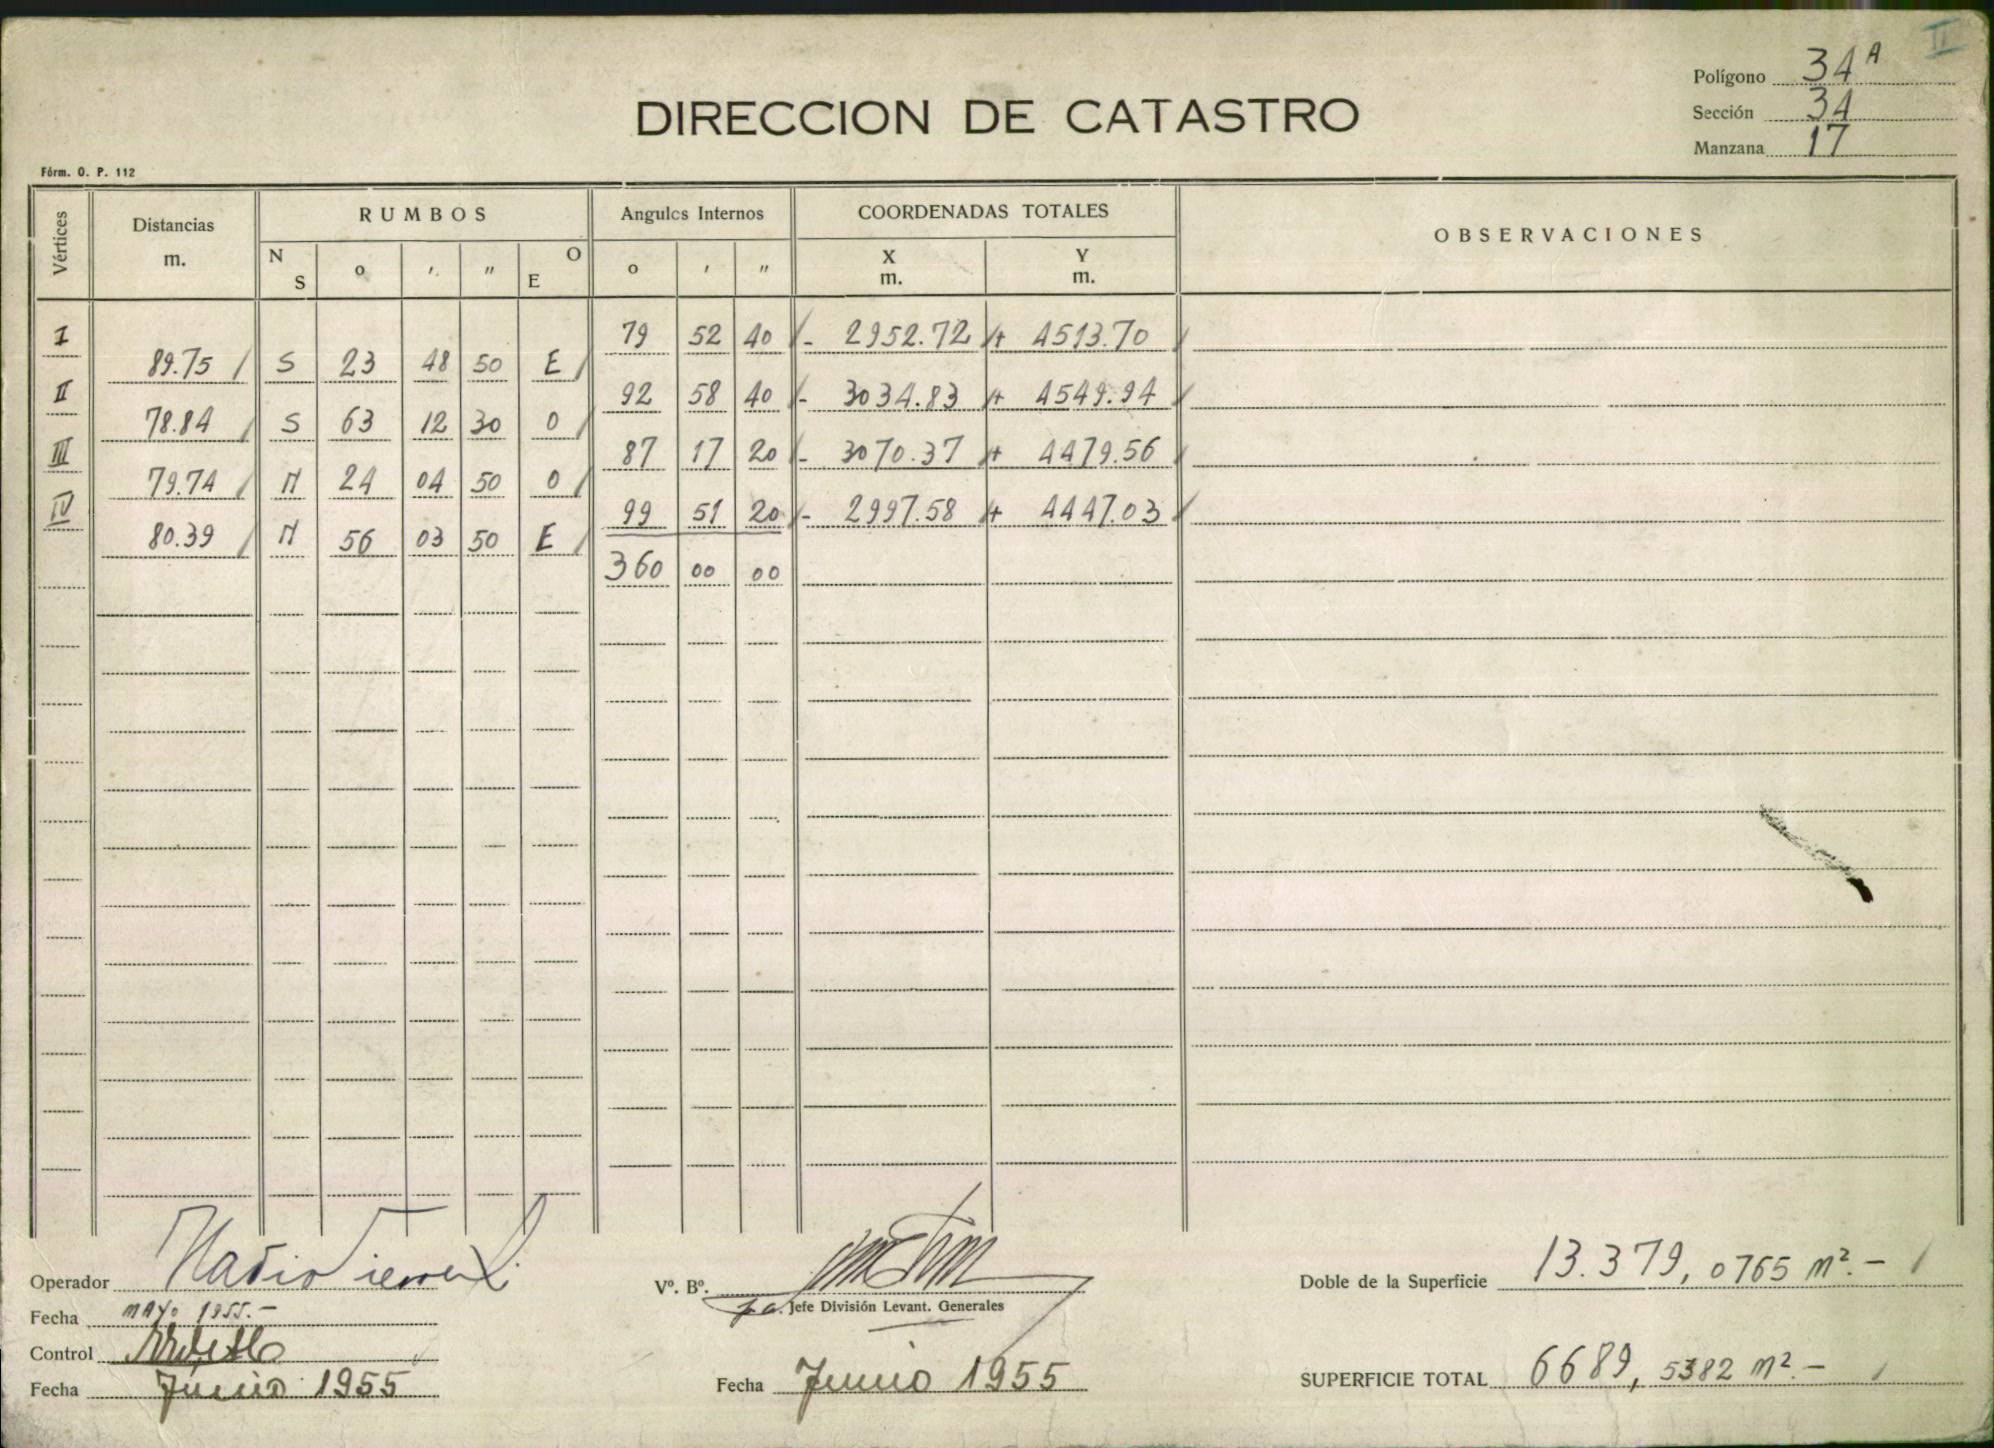 II
Polígono 34A
DIRECCION DE CATASTRO
Sección 34
Manzana 17
Fórm. O. P. 112
Vértices Distancias m. RUMBOS Angulos Internos COORDENADAS TOTALES OBSERVACIONES
N S o ′ ″ O E o ′ ″ X m. Y m.
I 79 52 40 - 2952.72 + 4513.70
89.75 S 23 48 50 E
II 92 58 40 - 3034.83 + 4549.94
78.84 S 63 12 30 O
III 87 17 20 - 3070.37 + 4479.56
79.74 N 24 04 50 O
IV 99 51 20 - 2997.58 + 4447.03
80.39 N 56 03 50 E
360 00 00
Operador
Vº. Bº.
Doble de la Superficie 13.379,0765 m².-
p.a. Jefe División Levant. Generales
Fecha MAYO 1955.-
Control
Fecha Junio 1955
Fecha Junio 1955
SUPERFICIE TOTAL 6689,5382 m².-